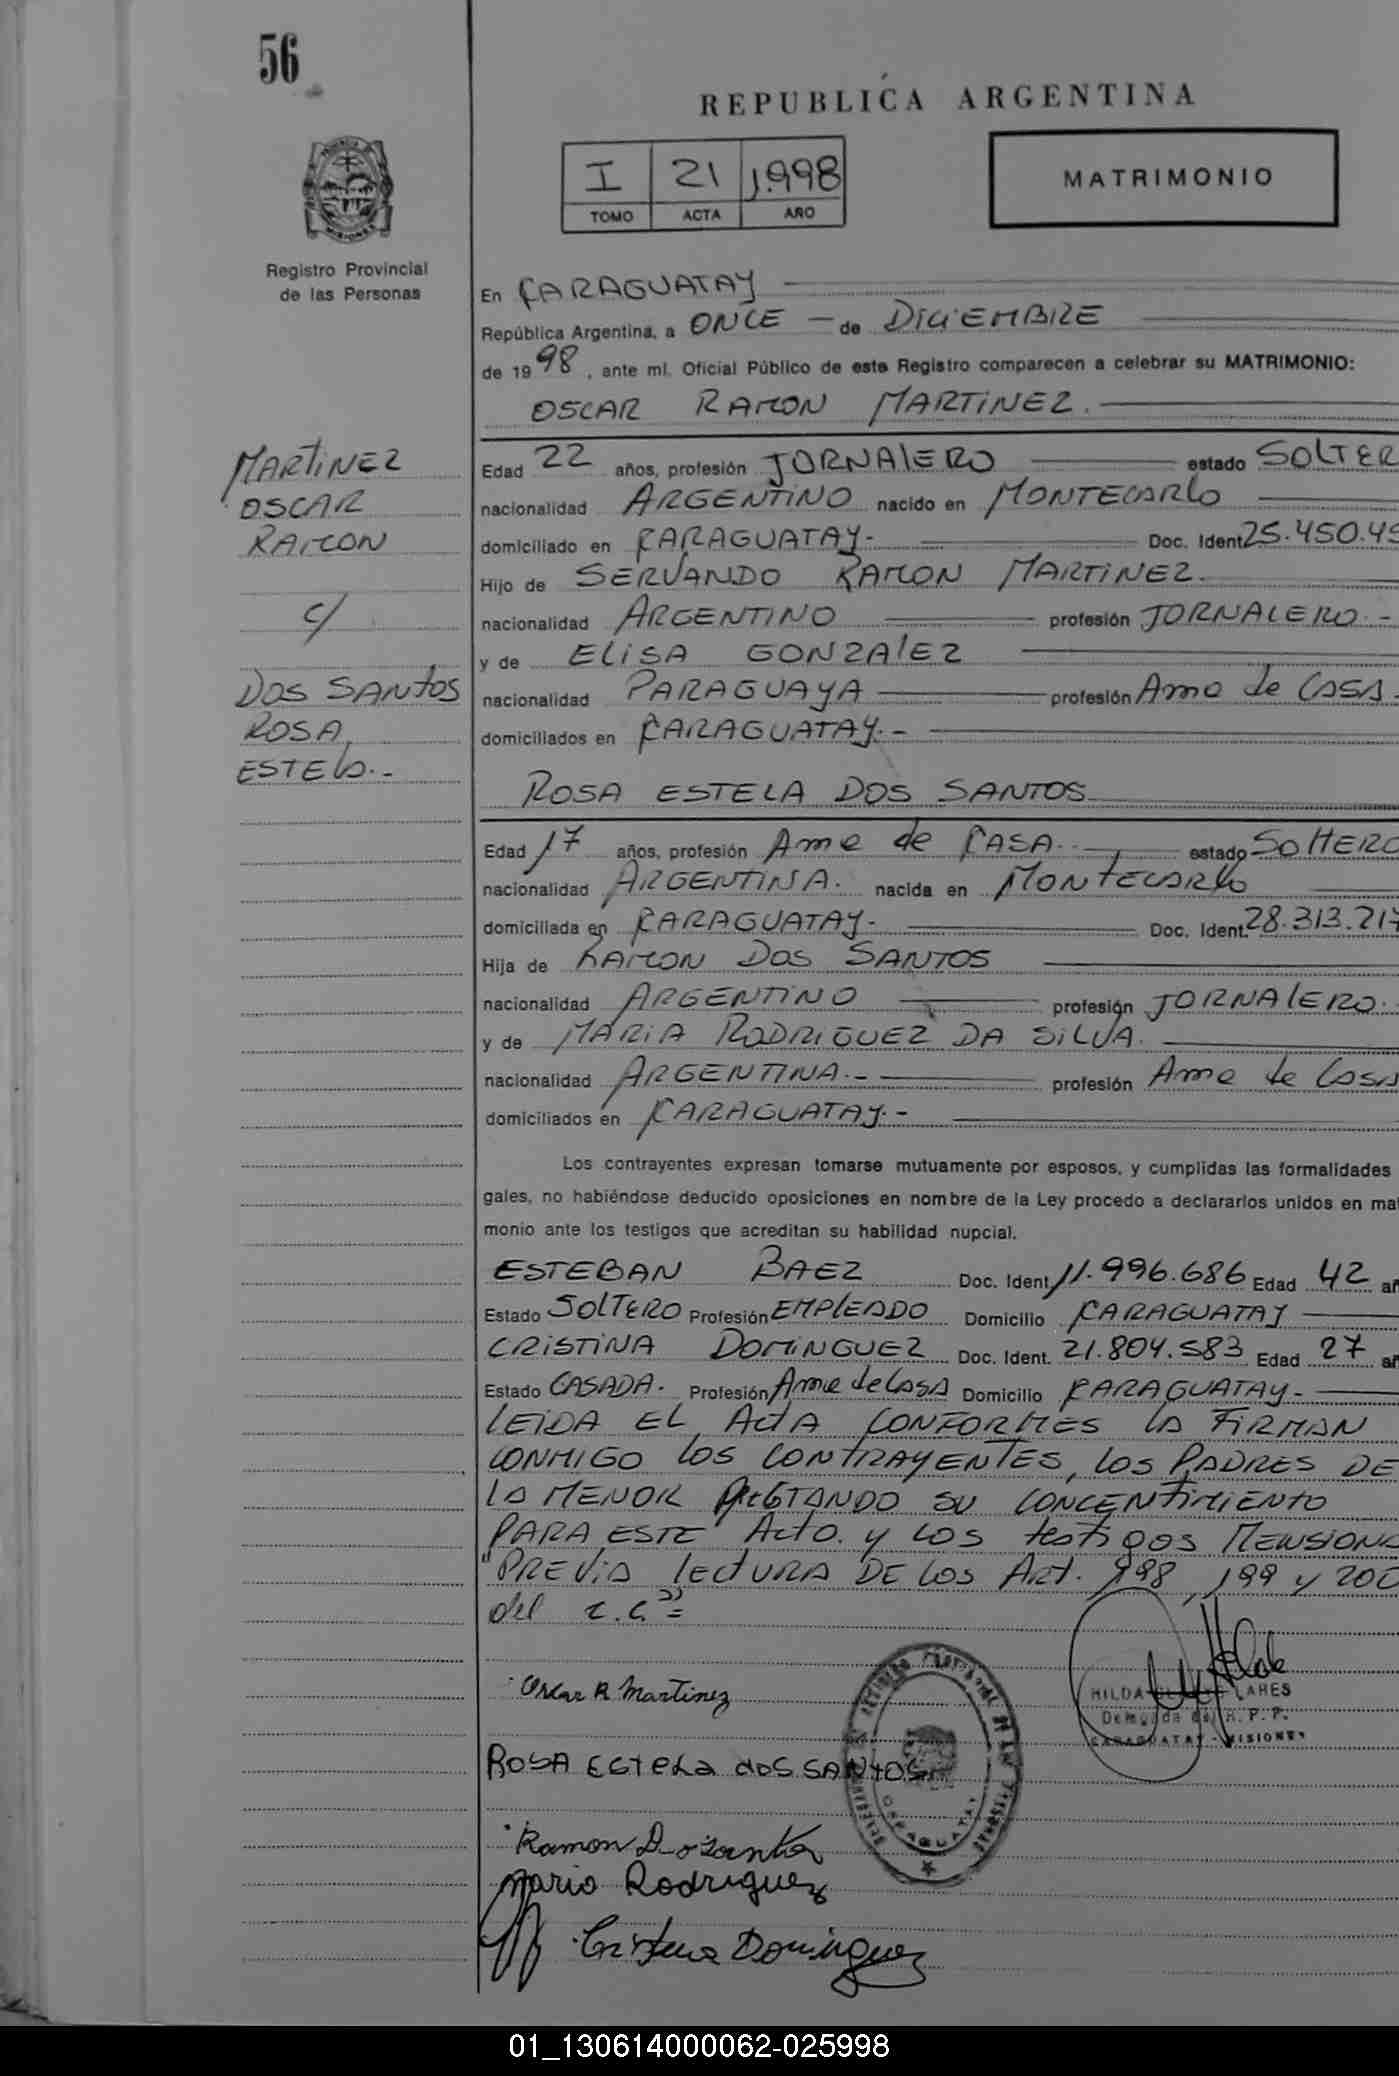 56
REPUBLICA ARGENTINA
I 21 1.998
TOMO ACTA AÑO
MATRIMONIO
PROVINCIA
MISIONES
Registro Provincial
de las Personas
En CARAGUATAY
República Argentina, a ONCE de DICIEMBRE
de 1998, ante mí. Oficial Público de este Registro comparecen a celebrar su MATRIMONIO:
OSCAR RAMON MARTINEZ.
MARTINEZ
OSCAR
RAMON
c/
DOS SANTOS
ROSA
ESTELA.-
Edad 22 años, profesión JORNALERO estado SOLTER
nacionalidad ARGENTINO nacido en MONTECARLO
domiciliado en CARAGUATAY- Doc. Ident. 25.450.45
Hijo de SERVANDO RAMON MARTINEZ.
nacionalidad ARGENTINO profesión JORNALERO.-
y de ELISA GONZALEZ
nacionalidad PARAGUAYA profesión Ama de CASA
domiciliados en CARAGUATAY.-
ROSA ESTELA DOS SANTOS
Edad 17 años, profesión Ama de CASA. estado SOLTERO
nacionalidad ARGENTINA. nacida en MONTECARLO
domiciliada en CARAGUATAY- Doc. Ident. 28.313.217
Hija de RAMON DOS SANTOS
nacionalidad ARGENTINO profesión JORNALERO.
y de MARIA RODRIGUEZ DA SILVA.
nacionalidad ARGENTINA.- profesión Ama de Casa
domiciliados en CARAGUATAY.-
Los contrayentes expresan tomarse mutuamente por esposos, y cumplidas las formalidades
gales, no habiéndose deducido oposiciones en nombre de la Ley procedo a declararlos unidos en mat
monio ante los testigos que acreditan su habilidad nupcial.
ESTEBAN BAEZ Doc. Ident. 11.996.686 Edad 42 añ
Estado SOLTERO Profesión EMPLEADO Domicilio CARAGUATAY
CRISTINA DOMINGUEZ Doc. Ident. 21.804.583 Edad 27 añ
Estado CASADA. Profesión Ama de Casa Domicilio CARAGUATAY-
LEIDA EL ActA CONFORMES LA FIRMAN
CONMIGO LOS CONTRAYENTES, LOS PADRES DE
LA MENOR PRESTANDO SU CONCENTIMIENTO
PARA ESTE Acto. y LOS testigos MENSIONA
"PREVIA lectURA DE LOS Art. 198, 199 y 200
del C.C"=
Oscar R Martinez
HILDA LARES
Delegada del R.P.P.
CARAGUATAY - MISIONES
ROSA EStELa dOS SANtOS
CARAGUATAY
Ramon Dosantos
Maria Rodriguez
Cristina Dominguez
01_130614000062-025998